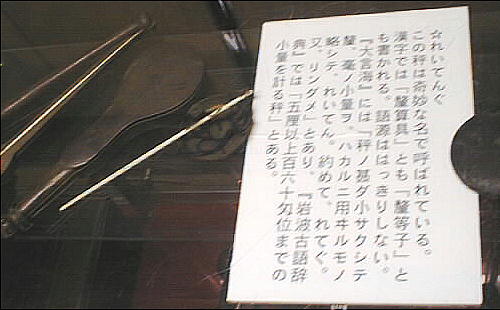 ☆れいてんぐ
この秤は奇妙な名で呼ばれている。
漢字では「釐算具」とも「釐等子」と
も書かれる。語源ははっきりしない。
『大言海』には「秤ノ甚ダ小サクシテ
釐、毫ノ小量ヲ、ハカルニ用ヰルモノ
略シテ、れいてん。約めて、れてぐ。
又、リンダメ」とあり、『岩波古語辞
典』では「五厘以上百六十匁位までの
小量を計る秤」とある。